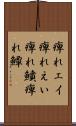 痺れエイ
痺れえい
痺れ鱝痺
れ鱏